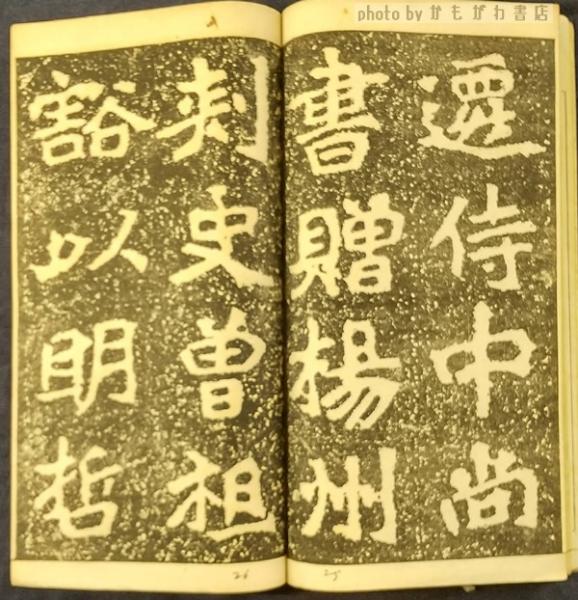 photo by かもがわ書店
遷侍中尚
書贈楊州
刺史曽祖
豁以明哲
25
26